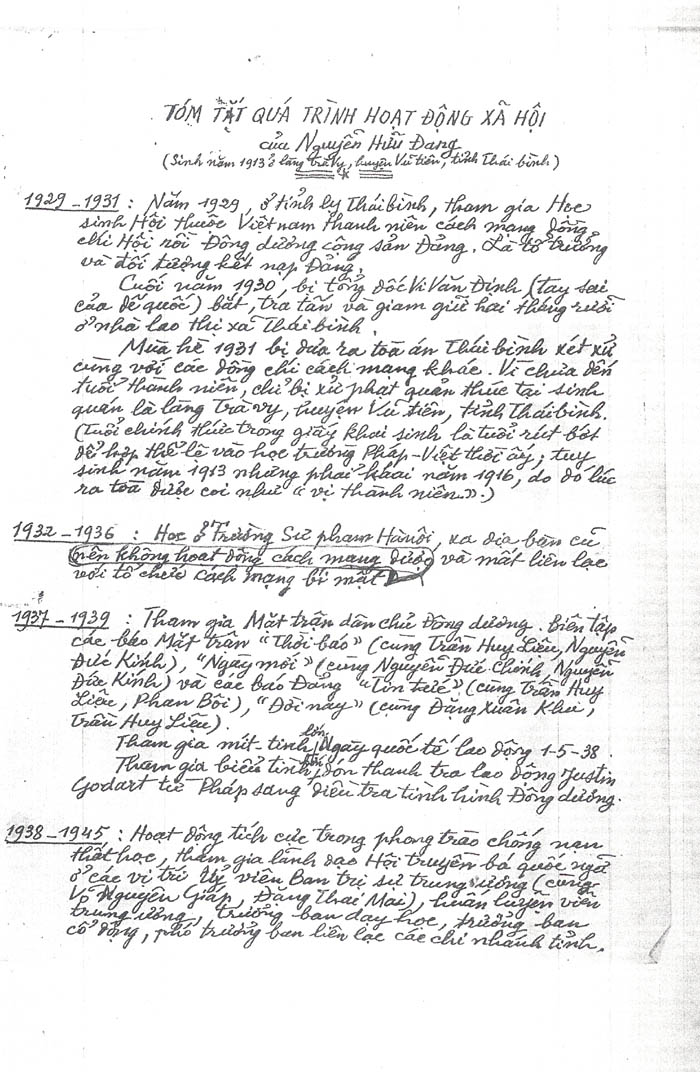 TÓM TẮT QUÁ TRÌNH HOẠT ĐỘNG XÃ HỘI
của Nguyễn Hữu Đang
(Sinh năm 1913 ở làng Trà Vy, huyện Vũ tiên, tỉnh Thái bình)
1929 – 1931 : Năm 1929, ở tỉnh lỵ Thái bình, tham gia Học
sinh Hội thuộc Việt nam thanh niên cách mạng đồng
chí Hội rồi Đông dương cộng sản Đảng. Là tổ trưởng
và đối tượng kết nạp Đảng.
Cuối năm 1930, bị tổng đốc Vi Văn Định (tay sai
của đế quốc) bắt, tra tấn và giam giữ hai tháng rưỡi
ở nhà lao thị xã Thái bình.
Mùa hè 1931 bị đưa ra toà án Thái bình xét xử
cùng với các đồng chí cách mạng khác. Vì chưa đến
tuổi thành niên, chỉ bị xử phạt quản thúc tại sinh
quán là làng Trà vy, huyện Vũ tiên, tỉnh Thái bình.
(Tuổi chính thức trong giấy khai sinh là tuổi rút bớt
để hợp thể lệ vào học trường Pháp-Việt thời ấy; tuy
sinh năm 1913 nhưng phải khai năm 1916, do đó lúc
ra toà được coi như "vị thành niên".)
1932 – 1936 : Học ở Trường Sư phạm Hà nội, xa địa bàn cũ
nên không hoạt động cách mạng được và mất liên lạc
với tổ chức cách mạng bí mật
1937 – 1939 : Tham gia Mặt trận dân chủ Đông dương. Biên tập
các báo Mặt trận "Thời báo" (cùng Trần Huy Liệu, Nguyễn
Đức Kính), "Ngày mới" (cùng Nguyễn Đức Chính, Nguyễn
Đức Kính) và các báo Đảng "Tin tức" (cùng Trần Huy
Liệu, Phan Bôi), "Đời nay" (cùng Đặng Xuân Khu,
Trần Huy Liệu).
Tham gia mít-tinh lớn Ngày quốc tế lao động 1-5-38.
Tham gia biểu tình khi đón thanh tra lao động Justin
Godart từ Pháp sang điều tra tình hình Đông dương.
1938 – 1945 : Hoạt động tích cực trong phong trào chống nạn
thất học, tham gia lãnh đạo Hội truyền bá quốc ngữ
ở các vị trí Uỷ viên Ban trị sự trung ương (cùng
Võ Nguyên Giáp, Đặng Thai Mai), huấn luyện viên
trung ương, trưởng ban dạy học, trưởng ban
cổ động, phó trưởng ban liên lạc các chi nhánh tỉnh.